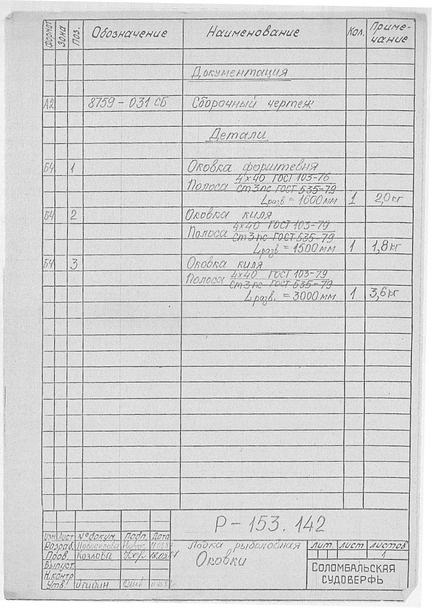 Формат Зона Поз. Обозначение Наименование Кол. Приме-чание
Документация
А2 8759-031 СБ Сборочный чертеж
Детали
БЧ 1 Оковка форштевня
Полоса 4×40 ГОСТ 103-76
Ст3пс ГОСТ 535-79
Lразв = 1600мм 1 2,0кг
БЧ 2 Оковка киля
Полоса 4×40 ГОСТ 103-79
Ст3пс ГОСТ 535-79
Lразв = 1500мм 1 1,8кг
БЧ 3 Оковка киля
Полоса 4×40 ГОСТ 103-79
Ст3пс ГОСТ 535-79
Lразв. = 3000мм 1 3,6кг
Р-153.142
Изм Лист № докум. Подп. Дата
Разраб.
Пров. Козлова
Выпуст.
Н.контр
Утв.
Лодка рыболовная
Оковки
Лит. Лист Листов
1
СОЛОМБАЛЬСКАЯ
СУДОВЕРФЬ